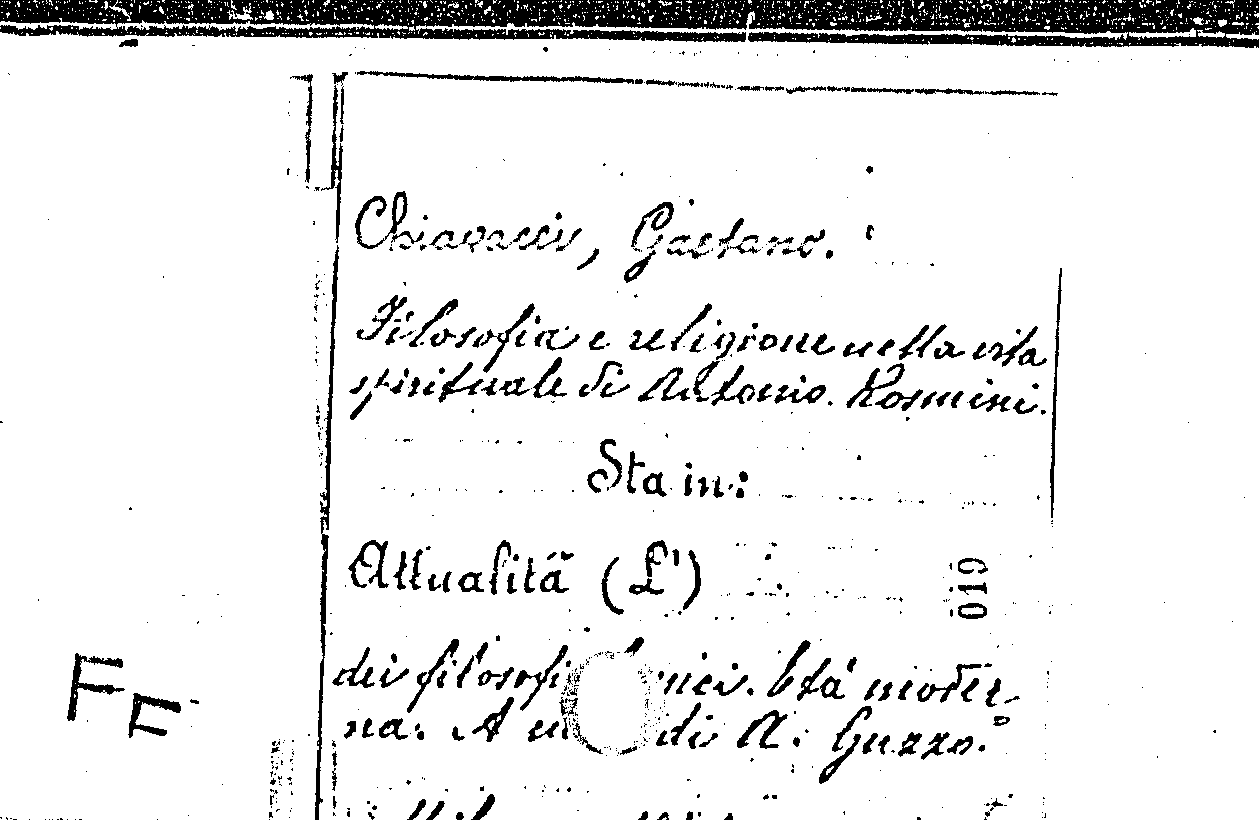 Chiavacci, Gaetano.
Filosofia e religione nella vita
spirituale di Antonio Rosmini.
Sta in:
Attualità (L')
019
dei filosofi Età moder-
na. A di A. Guzzo.
FE